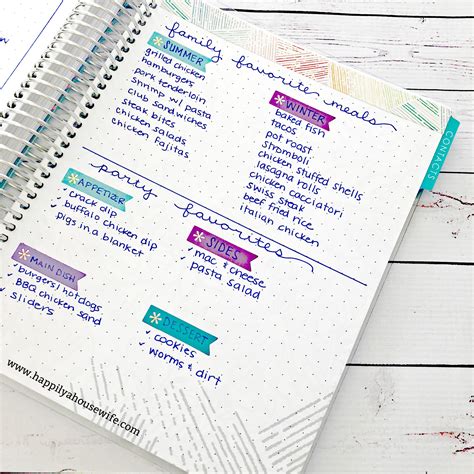 family favorite meals
SUMMER
grilled chicken
hamburgers
pork tenderloin
shrimp w/ pasta
club sandwiches
steak bites
chicken salads
chicken fajitas
WINTER
baked fish
tacos
pot roast
stromboli
chicken stuffed shells
lasagna rolls
chicken cacciatori
swiss steak
beef fried rice
italian chicken
CONTACTS
party favorites
APPETIZER
✓ crack dip
✓ buffalo chicken dip
pigs in a blanket
SIDES
✓ mac & cheese
pasta salad
MAIN DISH
✓ burgers/hotdogs
✓ BBQ chicken sand
✓ sliders
DESSERT
✓ cookies
✓ worms & dirt
www.happilyahousewife.com